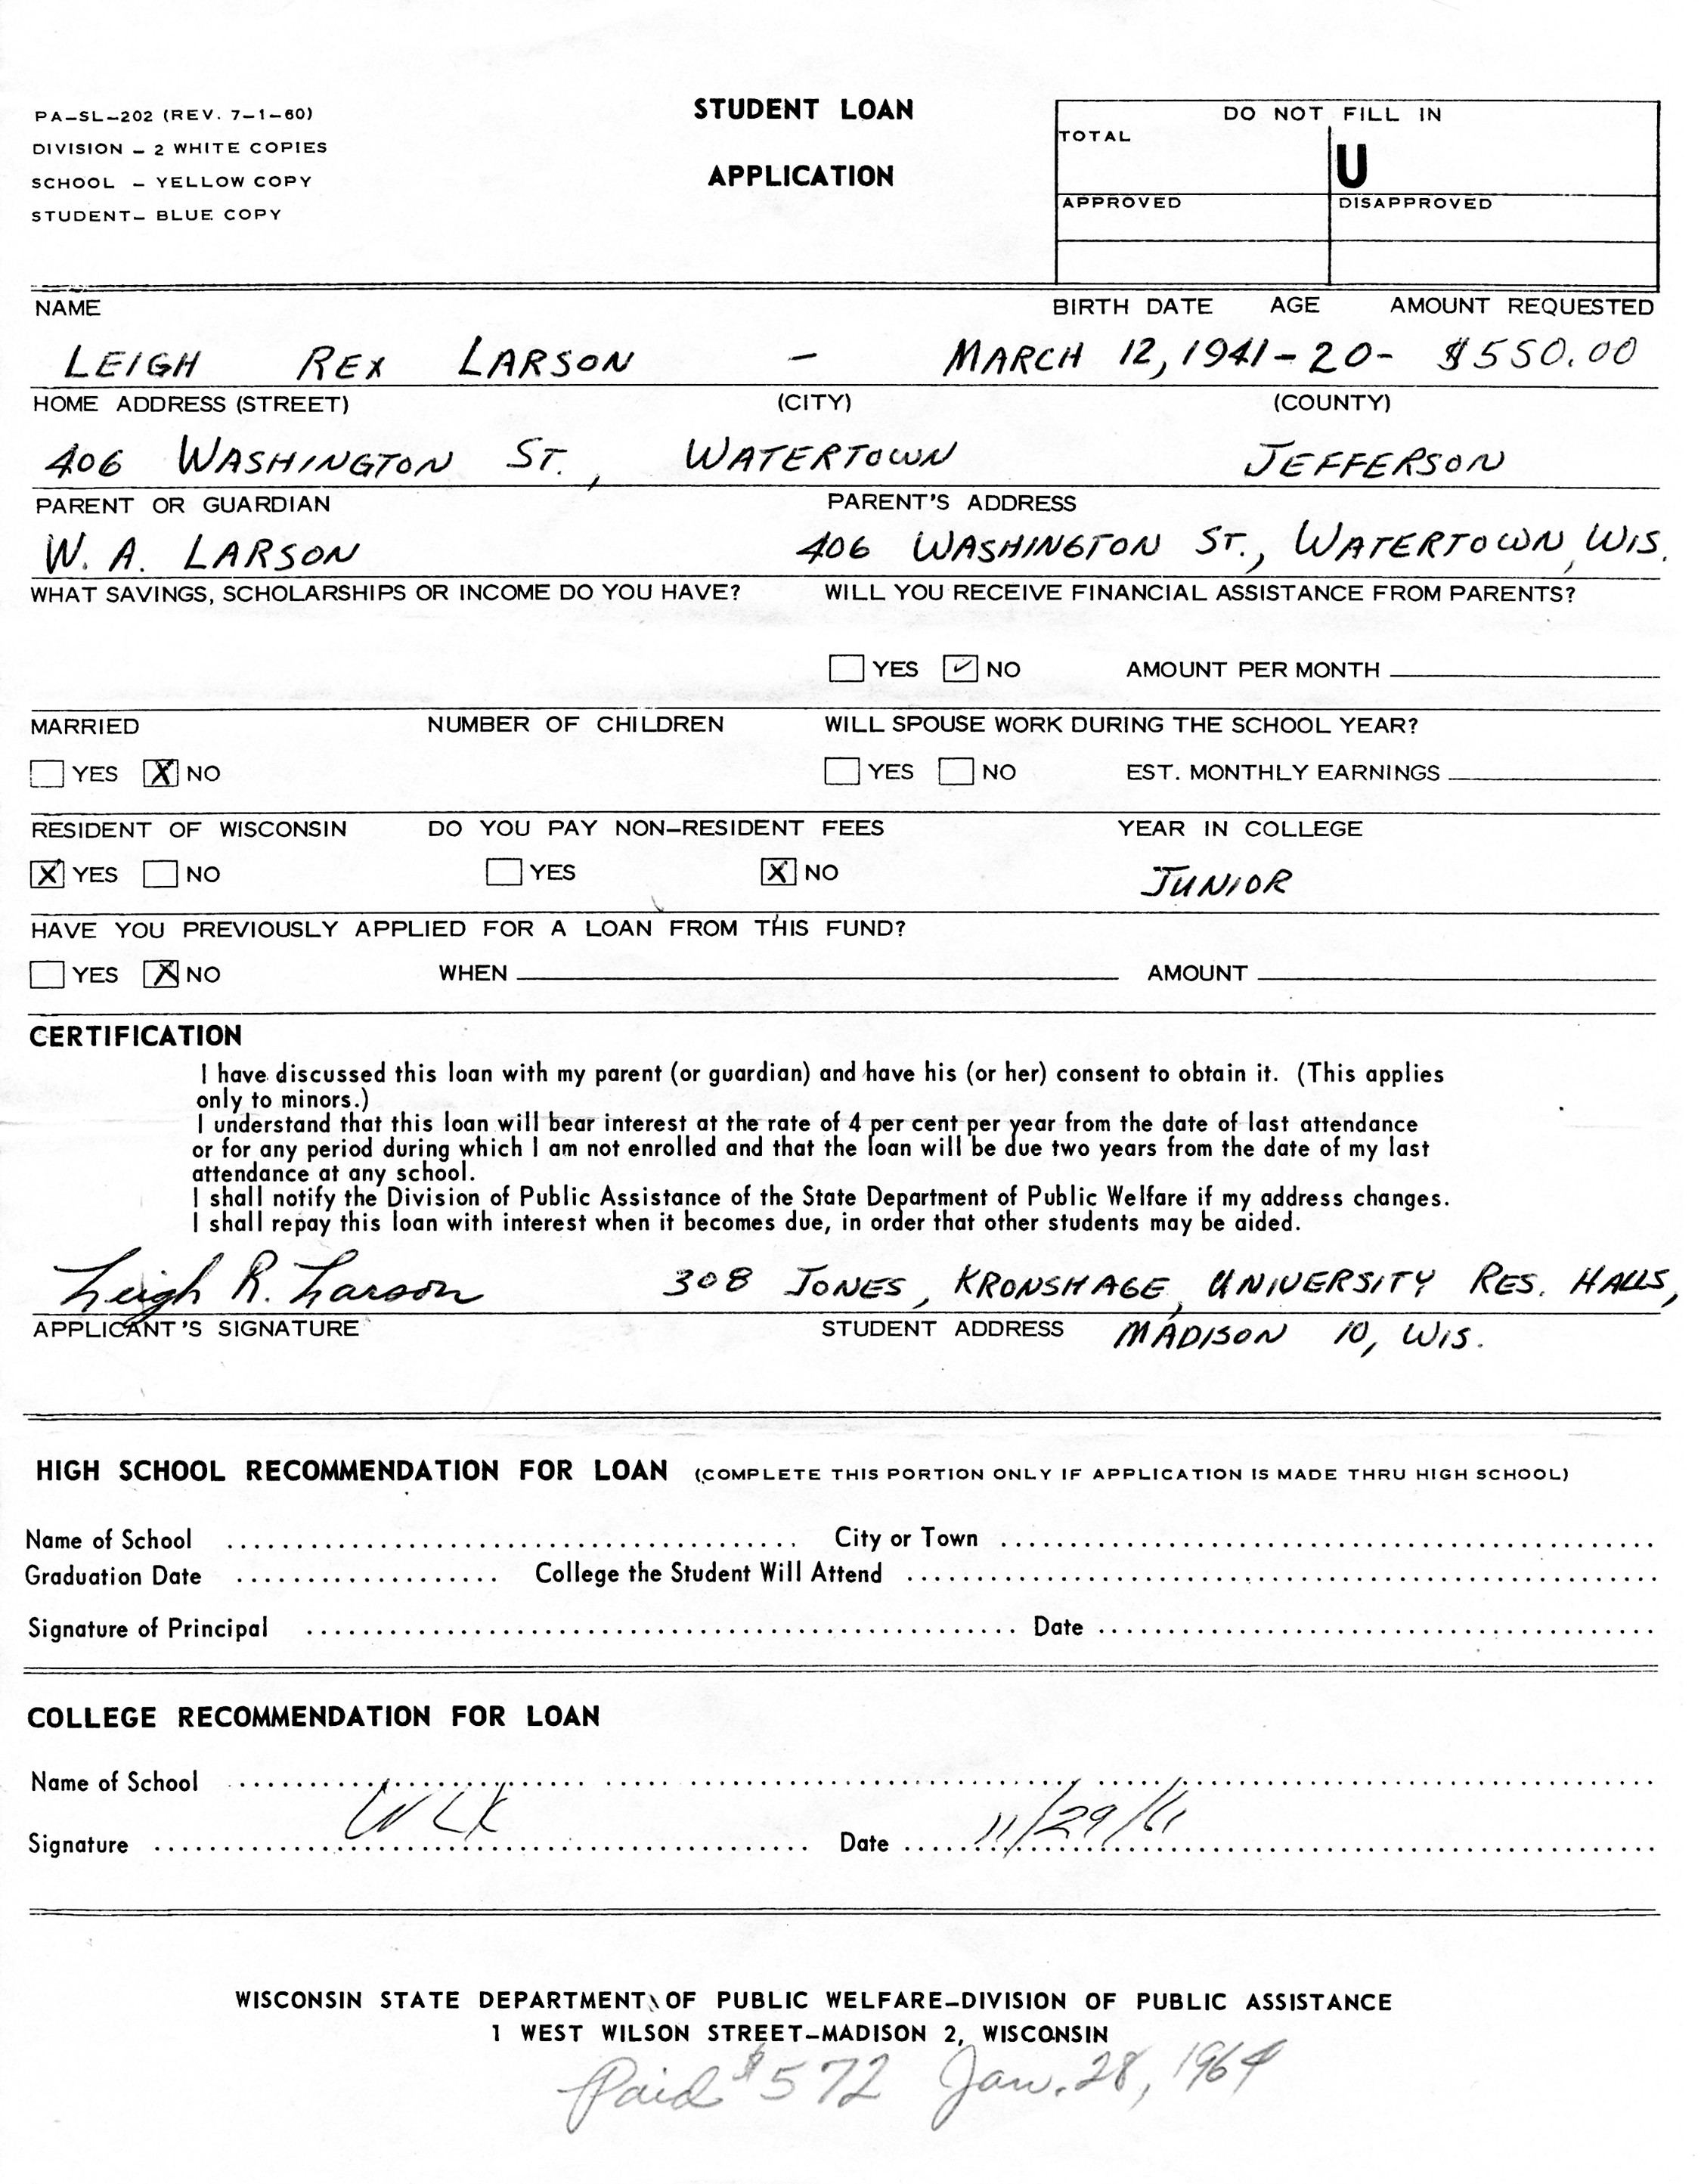 PA-SL-202 (REV. 7-1-60)
DIVISION - 2 WHITE COPIES
SCHOOL - YELLOW COPY
STUDENT- BLUE COPY
STUDENT LOAN
APPLICATION
DO NOT FILL IN
TOTAL
U
APPROVED DISAPPROVED
NAME BIRTH DATE AGE AMOUNT REQUESTED
LEIGH REX LARSON - MARCH 12, 1941-20- $550.00
HOME ADDRESS (STREET) (CITY) (COUNTY)
406 WASHINGTON ST., WATERTOWN JEFFERSON
PARENT OR GUARDIAN PARENT'S ADDRESS
W. A. LARSON 406 WASHINGTON ST., WATERTOWN, WIS.
WHAT SAVINGS, SCHOLARSHIPS OR INCOME DO YOU HAVE? WILL YOU RECEIVE FINANCIAL ASSISTANCE FROM PARENTS?
YES ✓ NO AMOUNT PER MONTH
MARRIED NUMBER OF CHILDREN WILL SPOUSE WORK DURING THE SCHOOL YEAR?
YES X NO YES NO EST. MONTHLY EARNINGS
RESIDENT OF WISCONSIN DO YOU PAY NON-RESIDENT FEES YEAR IN COLLEGE
X YES NO YES X NO JUNIOR
HAVE YOU PREVIOUSLY APPLIED FOR A LOAN FROM THIS FUND?
YES X NO WHEN AMOUNT
CERTIFICATION
I have discussed this loan with my parent (or guardian) and have his (or her) consent to obtain it. (This applies
only to minors.)
I understand that this loan will bear interest at the rate of 4 per cent per year from the date of last attendance
or for any period during which I am not enrolled and that the loan will be due two years from the date of my last
attendance at any school.
I shall notify the Division of Public Assistance of the State Department of Public Welfare if my address changes.
I shall repay this loan with interest when it becomes due, in order that other students may be aided.
Leigh R. Larson 308 JONES, KRONSHAGE, UNIVERSITY RES. HALLS,
APPLICANT'S SIGNATURE STUDENT ADDRESS MADISON 10, WIS.
HIGH SCHOOL RECOMMENDATION FOR LOAN (COMPLETE THIS PORTION ONLY IF APPLICATION IS MADE THRU HIGH SCHOOL)
Name of School City or Town
Graduation Date College the Student Will Attend
Signature of Principal Date
COLLEGE RECOMMENDATION FOR LOAN
Name of School
Signature Date 11/29/61
WISCONSIN STATE DEPARTMENT OF PUBLIC WELFARE-DIVISION OF PUBLIC ASSISTANCE
1 WEST WILSON STREET-MADISON 2, WISCONSIN
Paid $572 Jan. 28, 1964